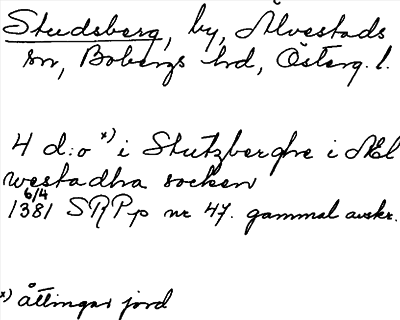 Studsberg, by, Älvestads
sn, Bobergs hd, Österg. l.
4 d:o x) i Stutzberghe i Æl
westadha socken
6/4
1381 SRPp nr 47. gammal avskr.
x) åttingar jord